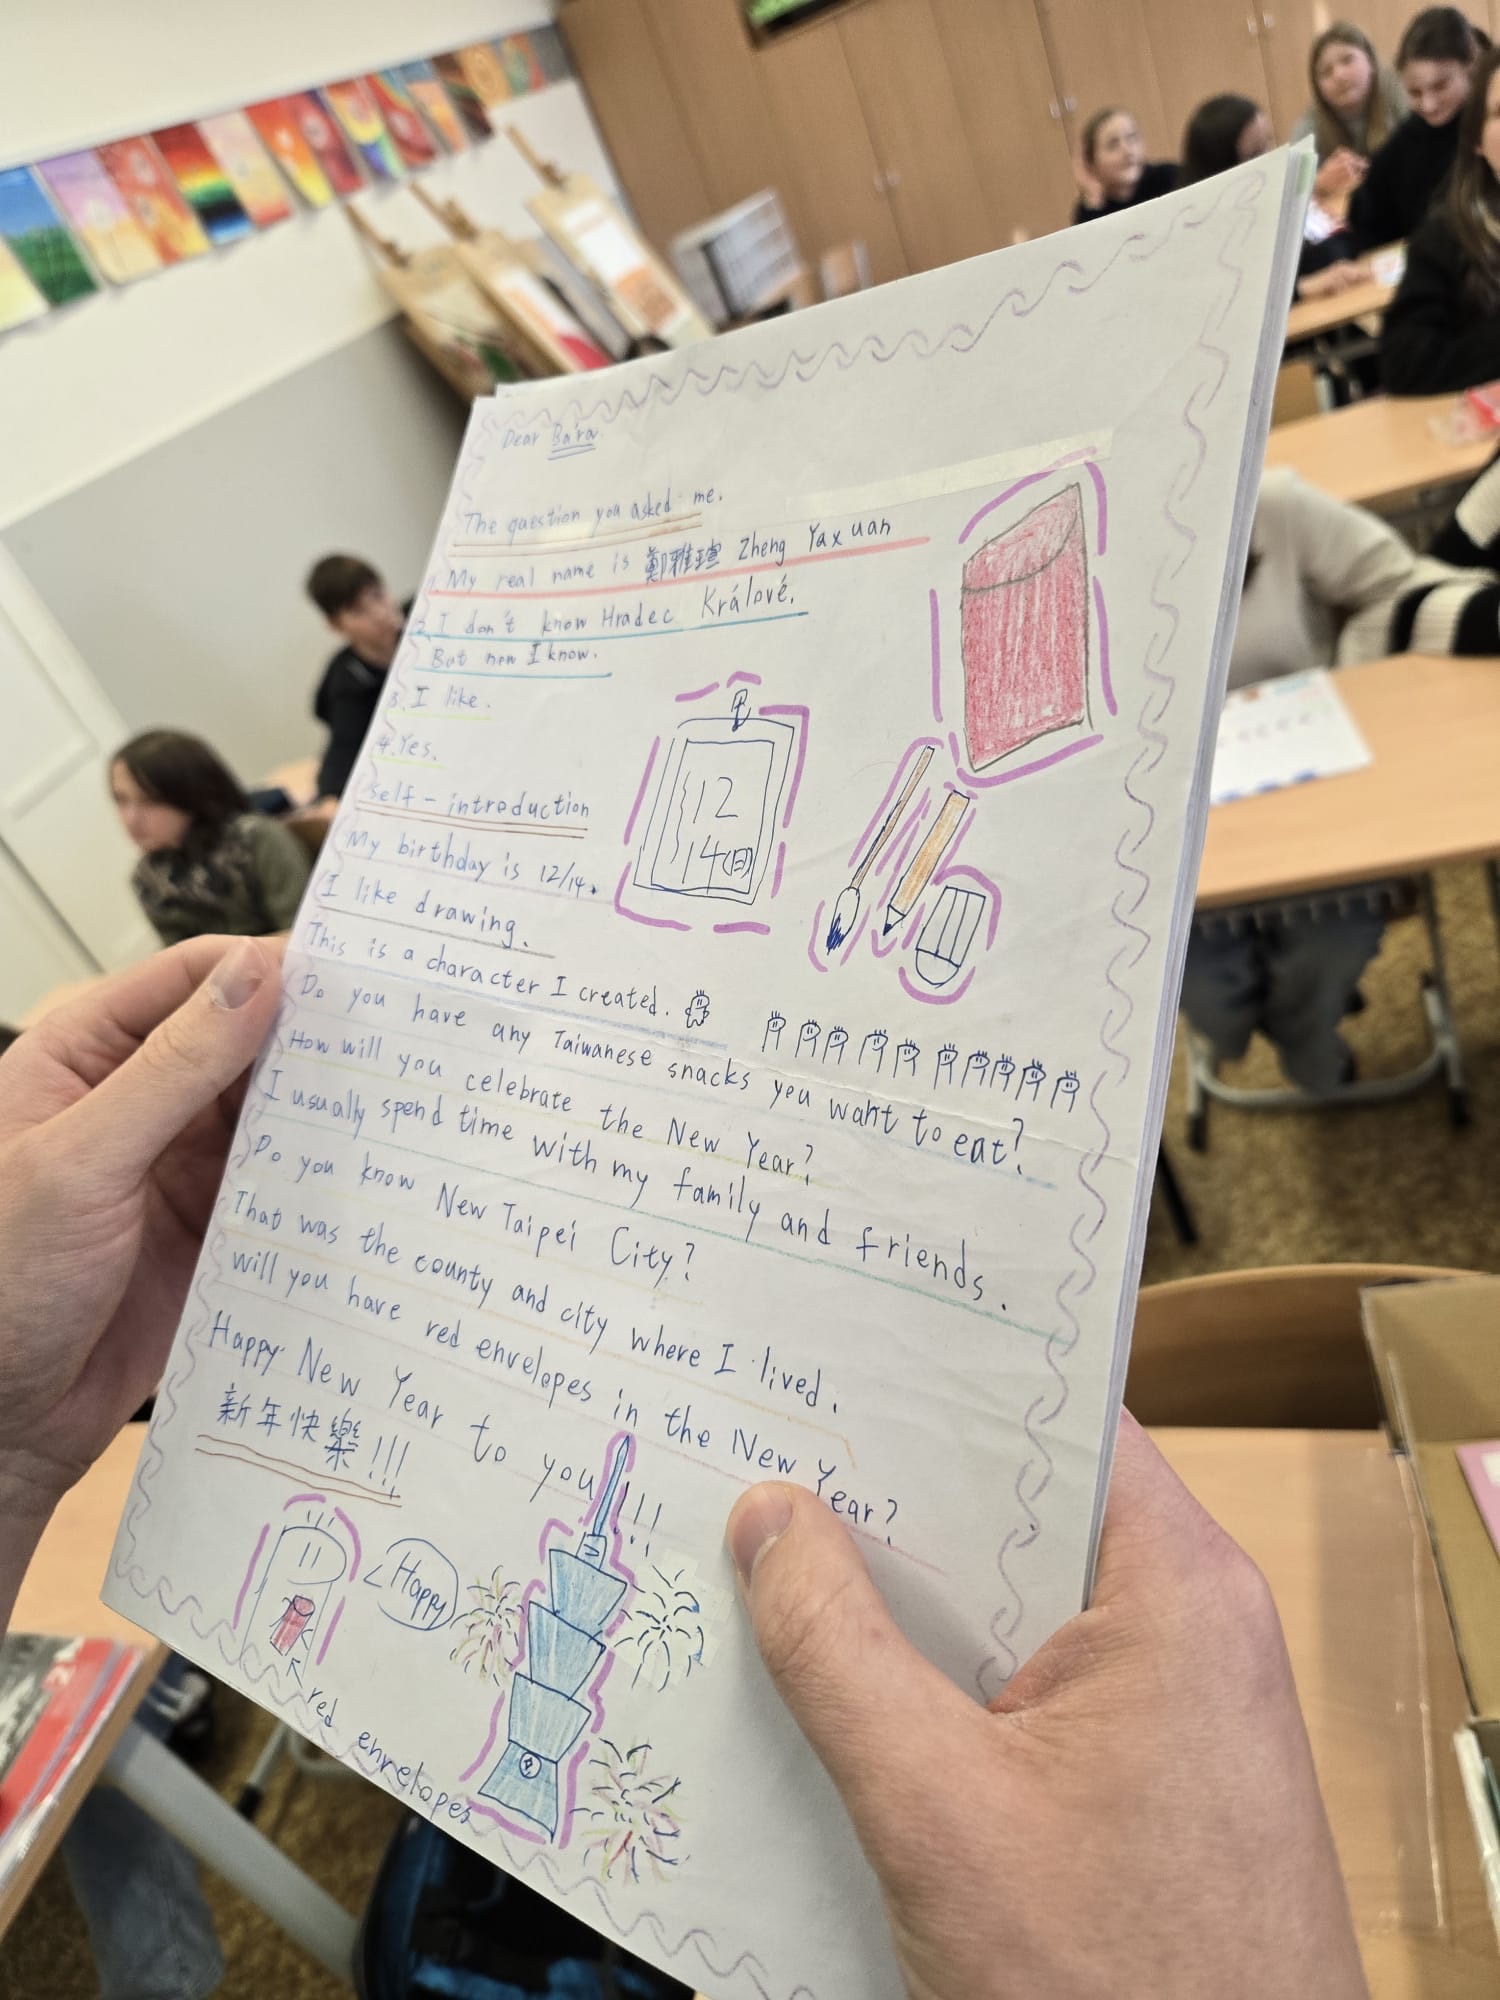 Dear Bára.
The question you asked me.
1. My real name is 鄭雅瑄 Zheng Yaxuan
2. I don't know Hradec Králové.
But now I know.
3. I like.
4. Yes.
self-introduction
My birthday is 12/14.
12
14(日)
I like drawing.
This is a character I created.
Do you have any Taiwanese snacks you want to eat?
How will you celebrate the New Year?
I usually spend time with my family and friends.
Do you know New Taipei City?
That was the county and city where I lived.
will you have red envelopes in the New Year?
Happy New Year to you!!!
新年快樂!!!
Happy
red envelopes